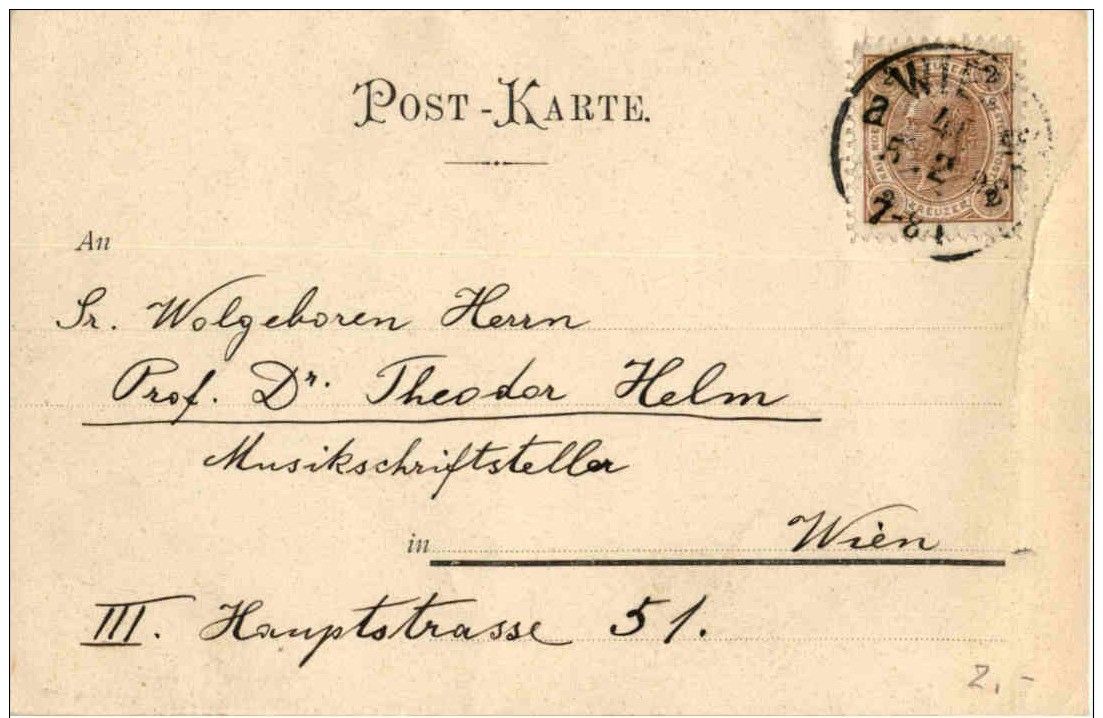 POST-KARTE.
WIE
2
4
5 2
7-8
2 2
2 KREUZER 2
An
Sr. Wolgeboren Herrn
Prof. Dr. Theodor Helm
Musikschriftsteller
in Wien
III. Hauptstrasse 51.
2,-